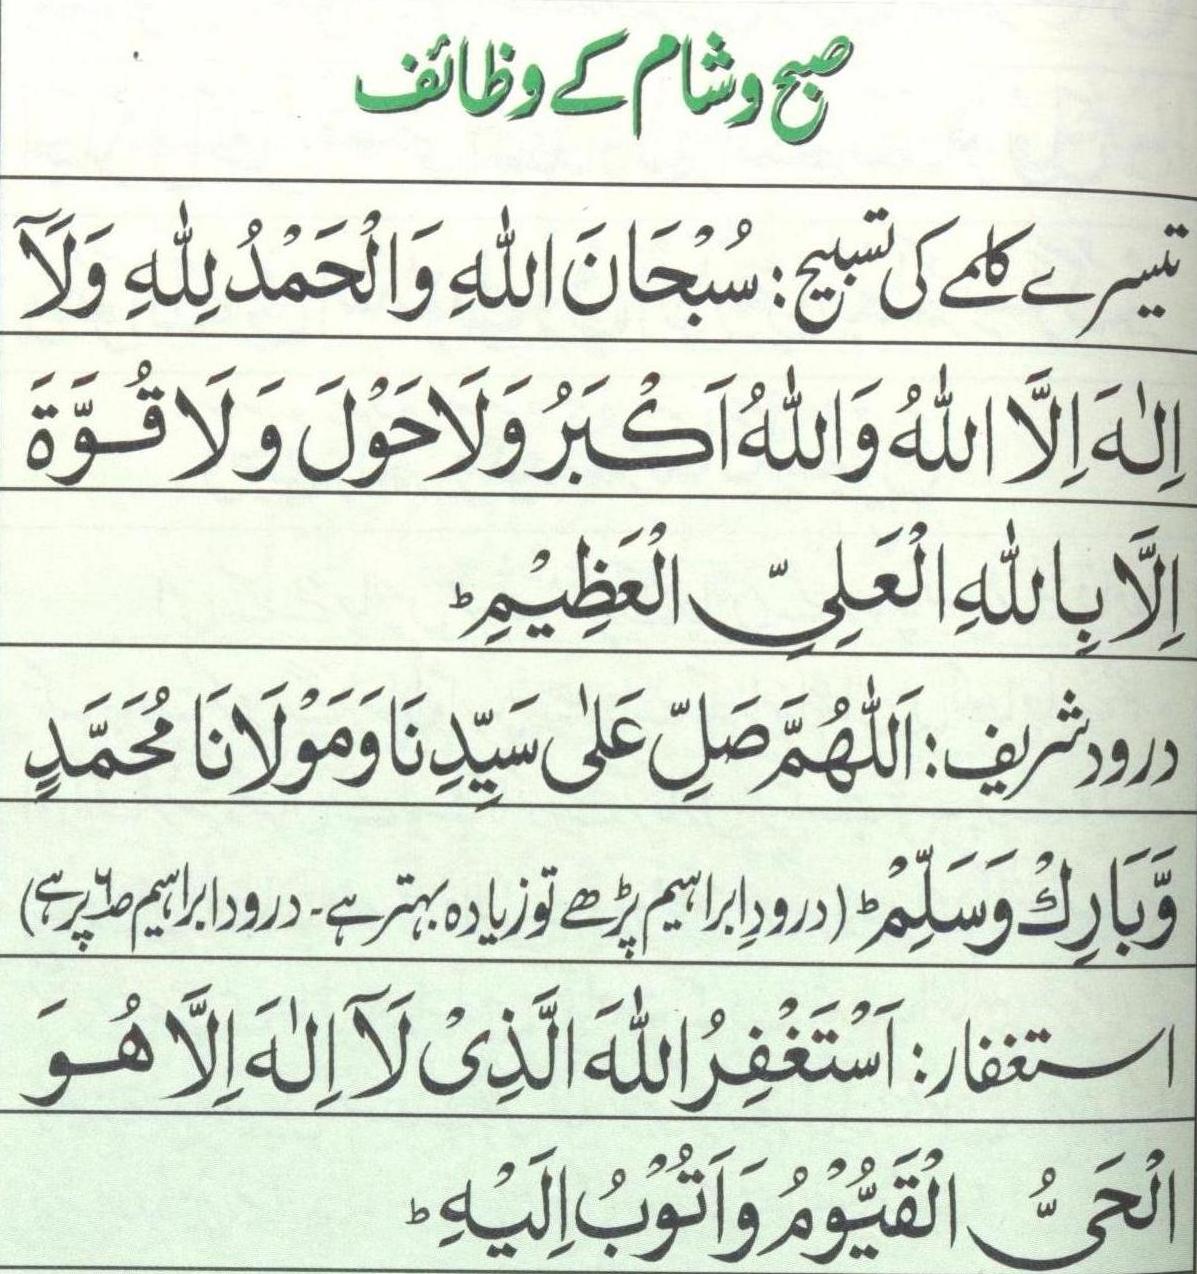 صبح و شام کے وظائف
تیسرے کلمے کی تسبیح: سُبْحَانَ اللّٰهِ وَالْحَمْدُ لِلّٰهِ وَلَآ
اِلٰهَ اِلَّا اللّٰهُ وَاللّٰهُ اَكْبَرُ وَلَا حَوْلَ وَلَا قُوَّةَ
اِلَّا بِاللّٰهِ الْعَلِيِّ الْعَظِيْمِ ؕ
درود شریف: اَللّٰهُمَّ صَلِّ عَلٰی سَيِّدِنَا وَمَوْلَانَا مُحَمَّدٍ
وَّبَارِكْ وَسَلِّمْ ؕ (درودِ ابراہیم پڑھے تو زیادہ بہتر ہے۔ درود ابراہیم صـ۶ پر ہے)
استغفار: اَسْتَغْفِرُ اللّٰهَ الَّذِیْ لَآ اِلٰهَ اِلَّا هُوَ
الْحَیُّ الْقَيُّوْمُ وَاَتُوْبُ اِلَيْهِ ؕ